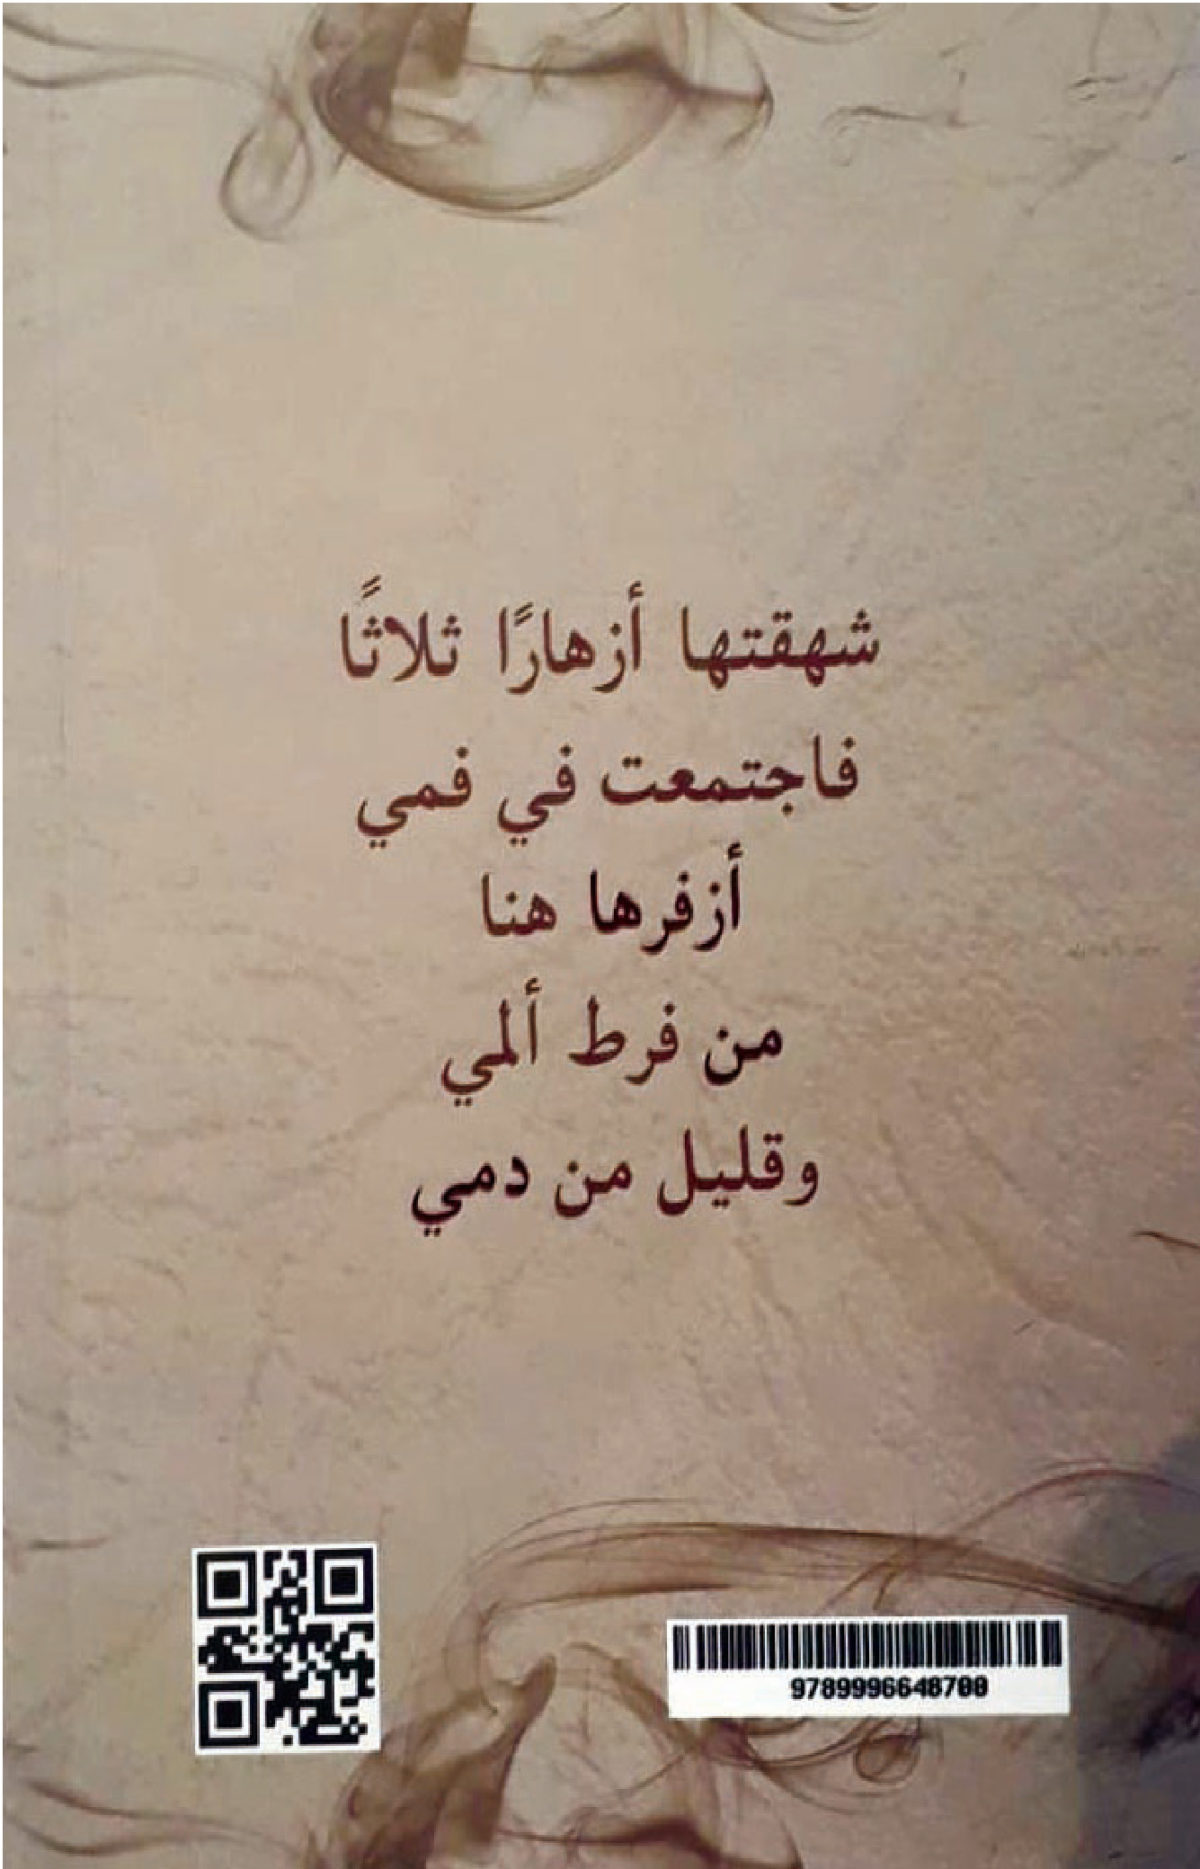 شهقتها أزهارًا ثلاثًا
فاجتمعت في فمي
أزفرها هنا
من فرط ألمي
وقليل من دمي
9789996648700